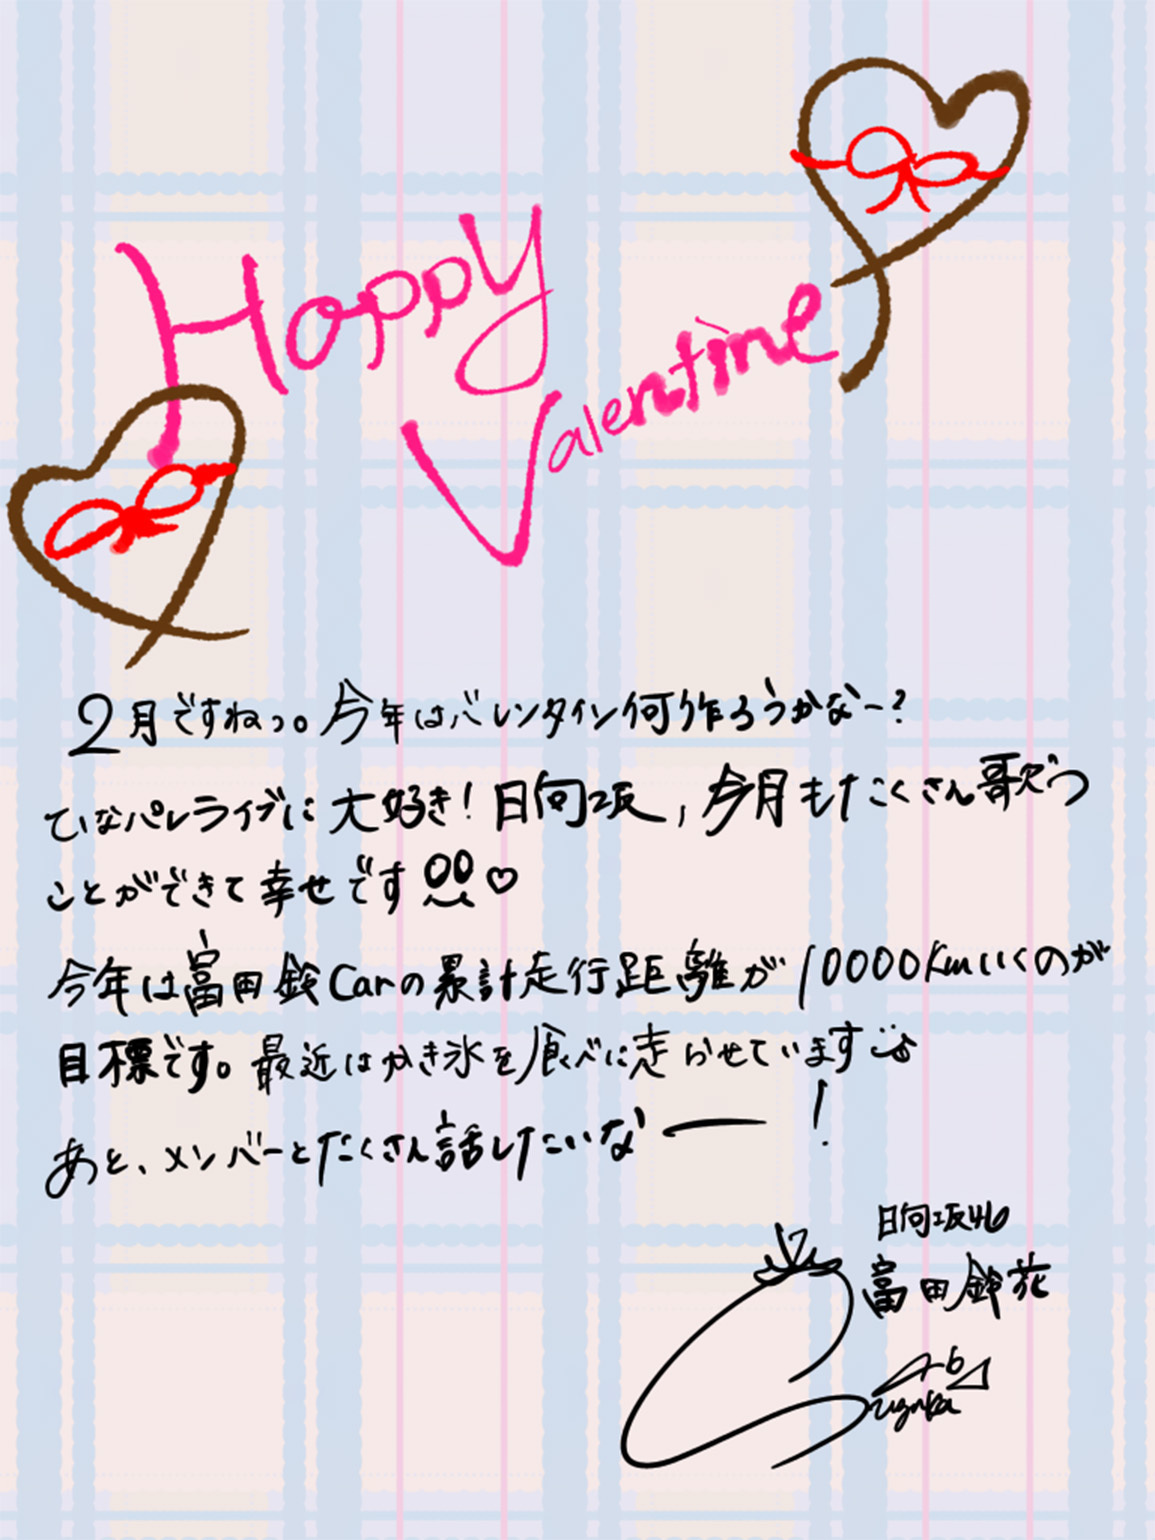 Happy
Valentine
2月ですねっ。今年はバレンタイン何作ろうかなー?
ていなパレライブに大好き!日向坂,今月もたくさん歌う
ことができて幸せです♡
今年は富田鈴Carの累計走行距離が10000Kmいくのが
目標です。最近はかき氷を食べに走らせています
あと、メンバーとたくさん話したいなー!
日向坂46
富田鈴花
Suzuka